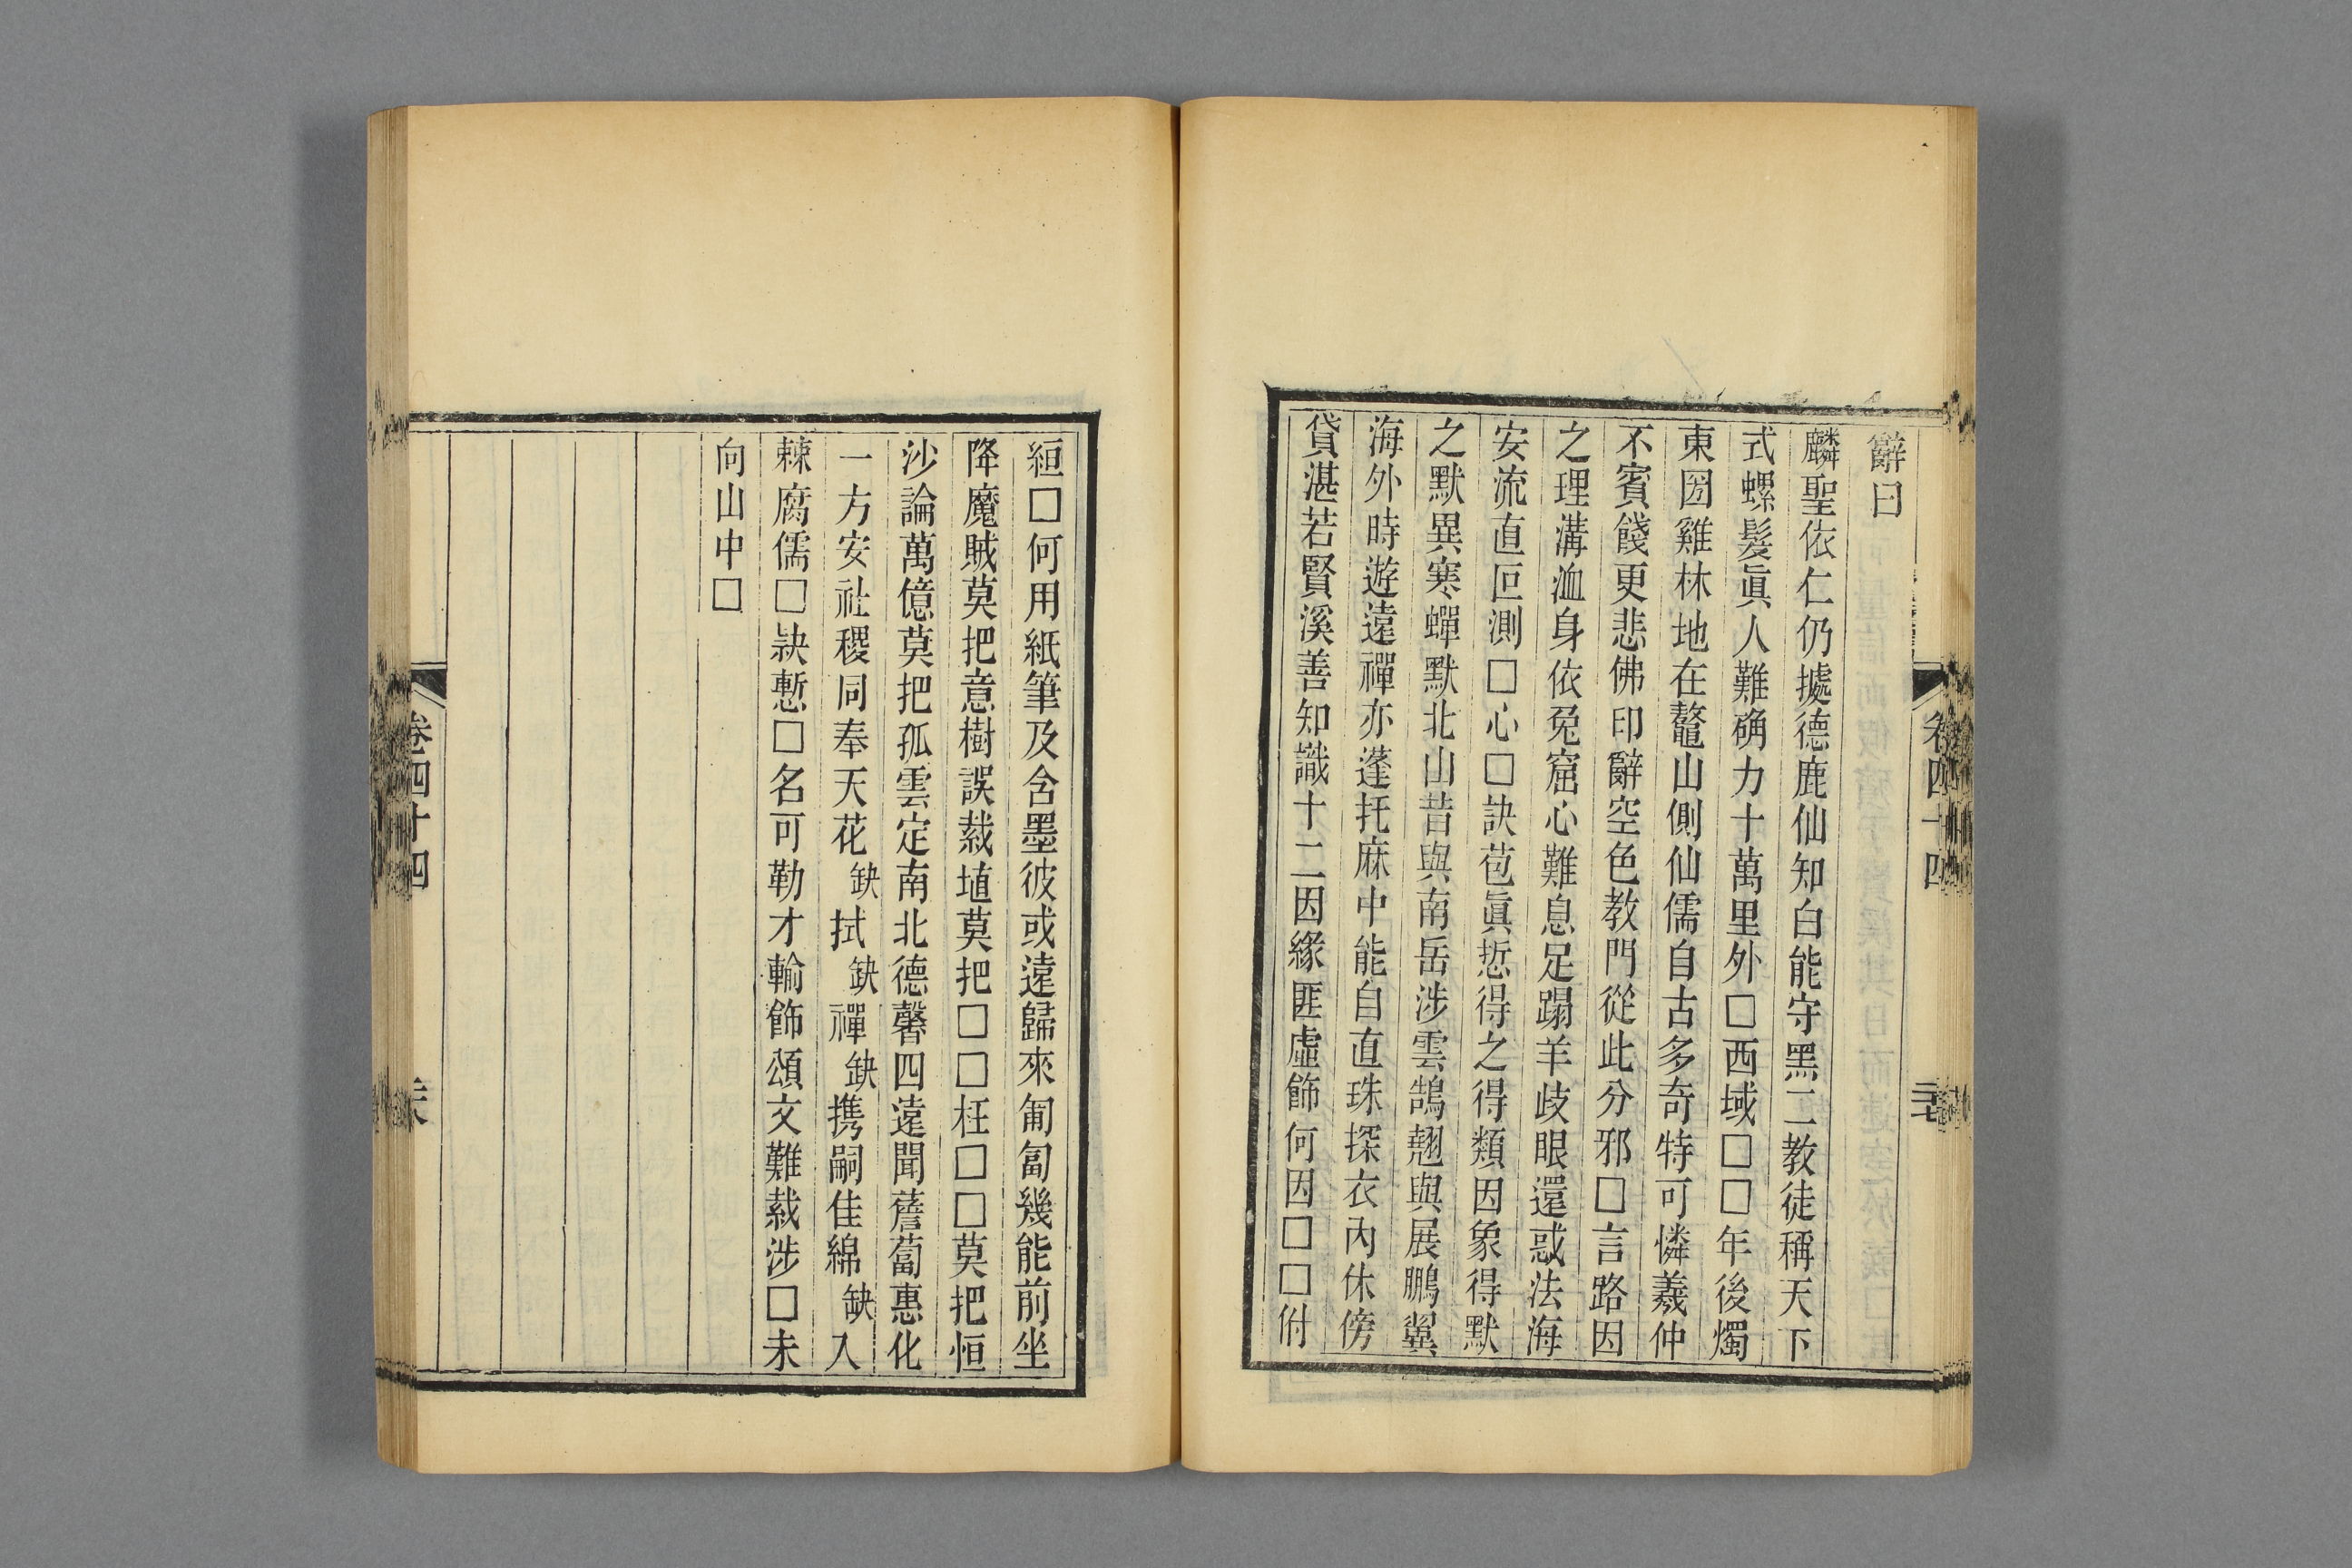 辭曰
麟聖依仁仍據德鹿仙知白能守黑二教徒稱天下
式螺髮眞人難确力十萬里外□西域□□年後燭
東圀雞林地在鼇山側仙儒自古多奇特可憐羲仲
不賓餞更悲佛印辭空色教門從此分邪□言路因
之理溝洫身依兔窟心難息足蹋羊歧眼還惑法海
安流直叵測□心□訣苞眞惁得之得類因象得默
之默異寒蟬默北山昔與南岳涉雲鵠翹與展鵬翼
海外時遊遠禪亦蓬托麻中能自直珠探衣內休傍
貸湛若賢溪善知識十二因緣匪虛飾何因□□附
絙□何用紙筆及含墨彼或遠歸來匍匐幾能前坐
降魔賊莫把意樹誤栽埴莫把□□枉□□莫把恒
沙論萬億莫把孤雲定南北德馨四遠聞薝蔔惠化
一方安社稷同奉天花缺拭缺禪缺携嗣佳綿缺入
棘腐儒□詇慙□名可勒才輸飾頌文難栽涉□未
向山中□
卷四十四
卷四十四